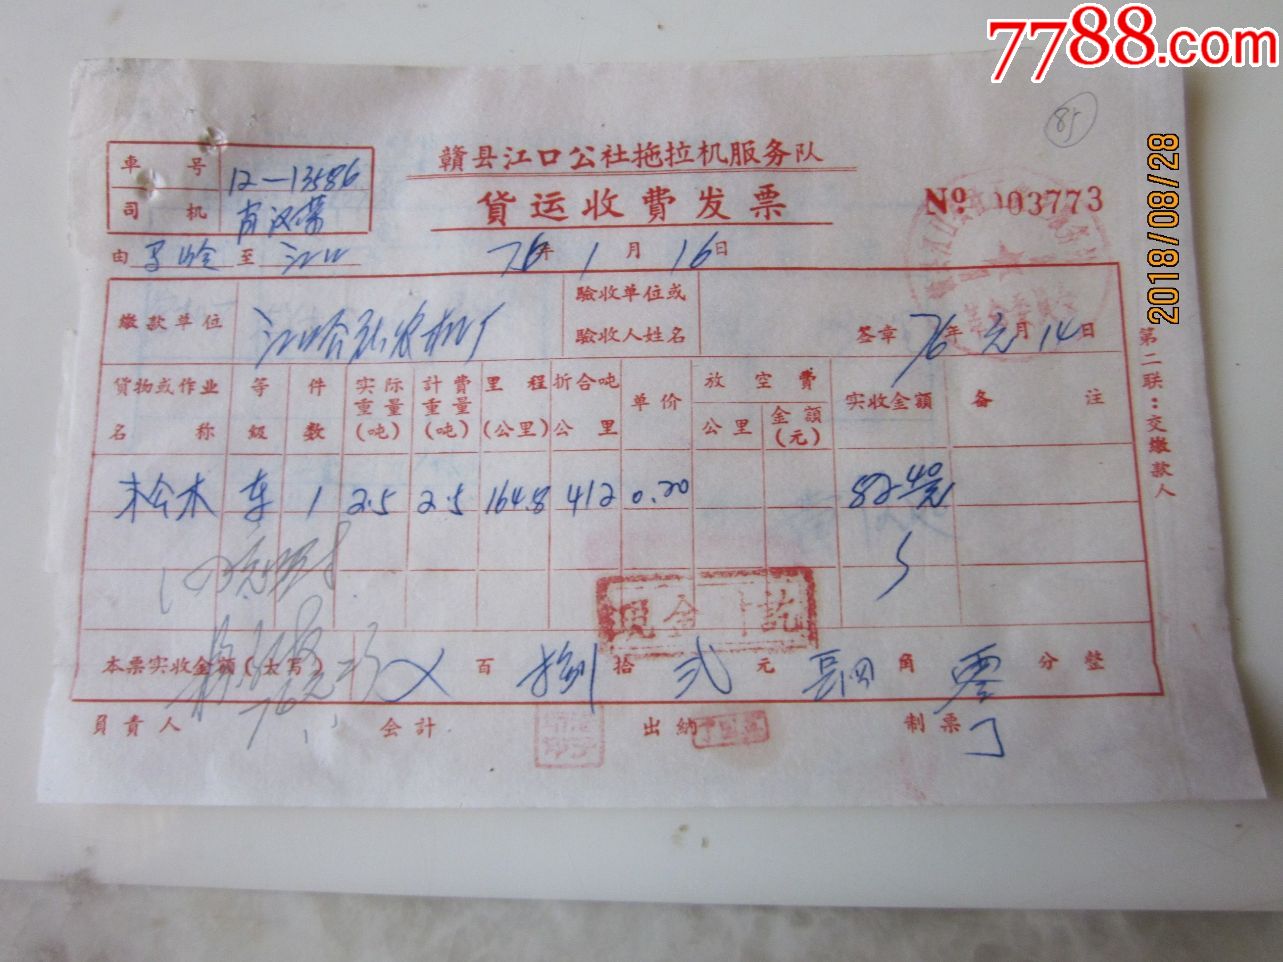 7788.com
85
2018/08/28
車号 12-13586
司机
贛县江口公社拖拉机服务队
貨运收費发票
№ 003773
由 至 江口
76年1月16日
繳款单位 江口公社农机厂
驗收单位或
驗收人姓名
签章 76年元月14日
貨物或作业名称 等級 件数 实际重量(吨) 計費重量(吨) 里程(公里) 折合吨公里 单价 放空費 公里 金額(元) 实收金額 备注
松木 车 1 2.5 2.5 164.8 412 0.20 82.40元
現金付訖
本票实收金額(大写) 百 捌拾 弍元 肆角 零分整
負責人 会計 出納 制票
第二联:交繳款人